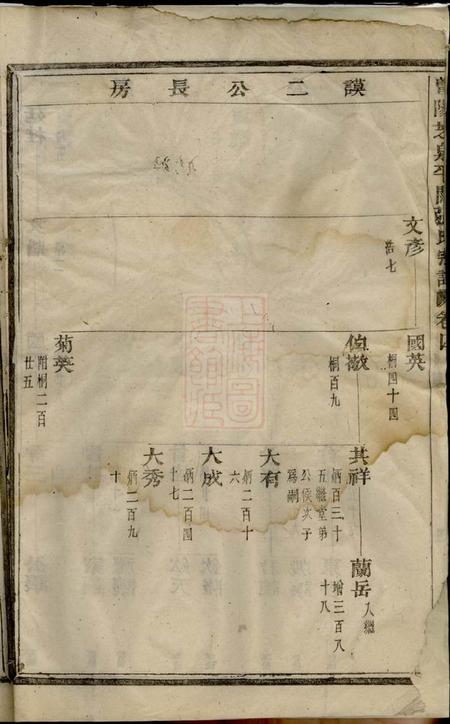 謨二公長房
文彥
浩七
國英
桐四十四
桐百九
其祥
炳百三十
五繼堂弟
公侯次子
爲嗣
蘭岳
入繼
增三百八
十八
大有
炳二百十
六
大成
炳二百四
十七
大秀
炳二百九
十
菊英
附桐二百
廿五